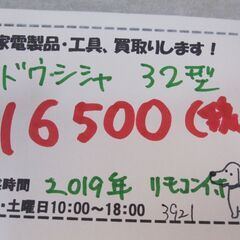 家電製品・工具、買取りします！
ドウシシャ 32型
16500(税
時間 2019年 リモコン付
・土曜日10:00～18:00 3921